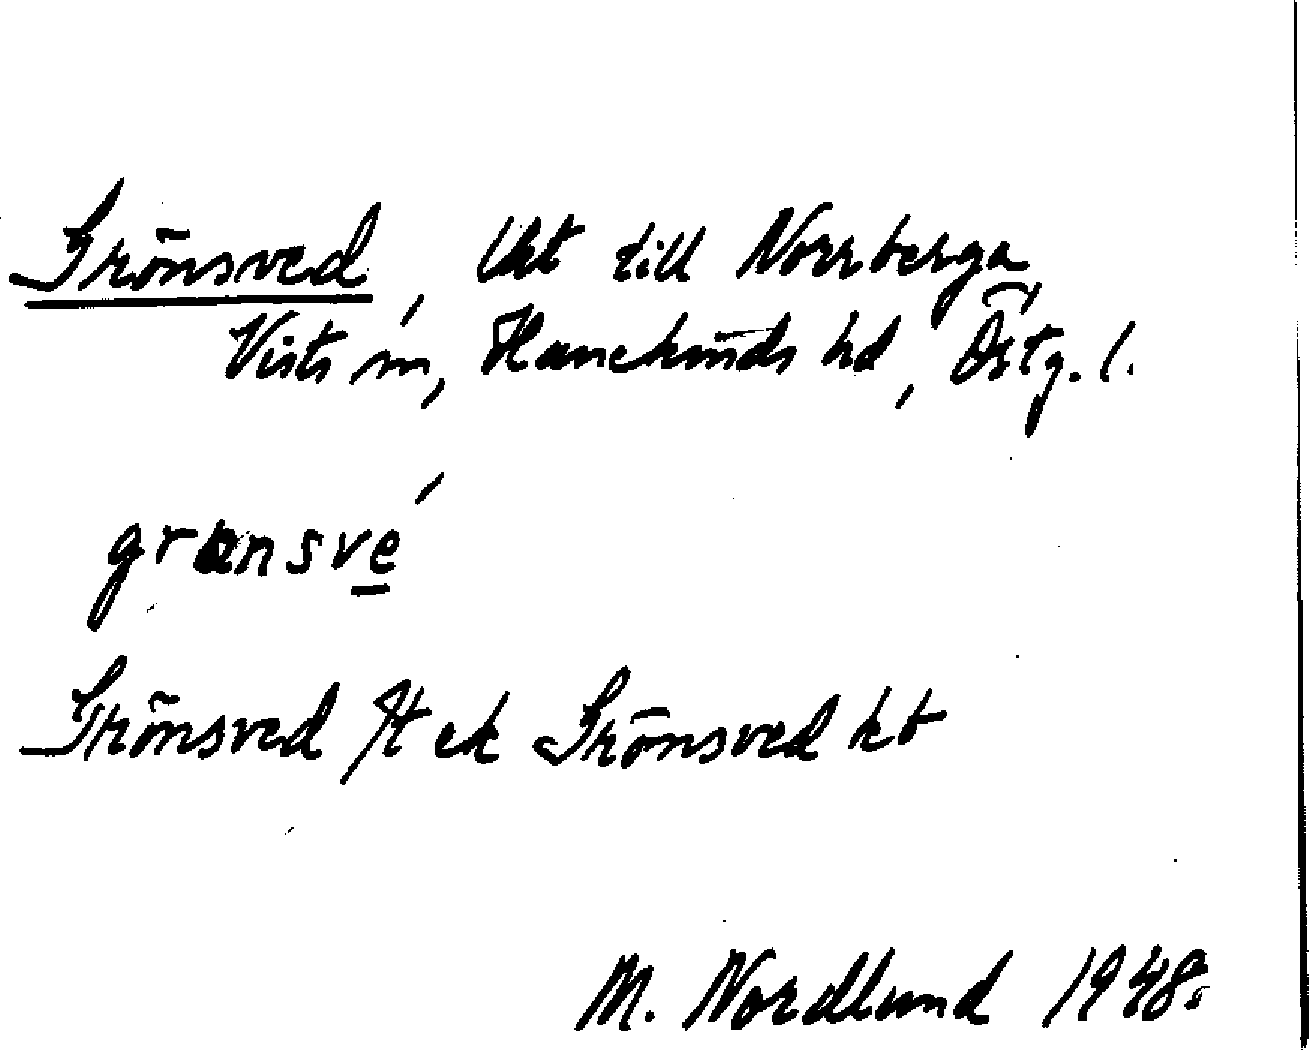 Grönsved, Utt till Norrberga
Vists sn, Hanekinds hd, Östg. l.
grønsve´
Grönsved jt ek Grönsved kt
M. Nordlund 1948.